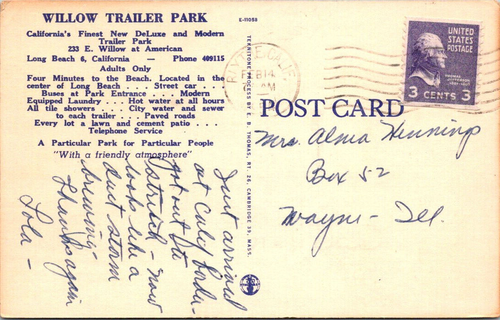 WILLOW TRAILER PARK
California's Finest New DeLuxe and Modern
Trailer Park
233 E. Willow at American
Long Beach 6, California — Phone 409115
Adults Only
Four Minutes to the Beach. Located in the
center of Long Beach . . . Street car . . .
Buses at Park Entrance . . . Modern
Equipped Laundry . . . Hot water at all hours
All tile showers . . . City water and sewer
to each trailer . . . Paved roads
Every lot a lawn and cement patio . . .
Telephone Service
A Particular Park for Particular People
"With a friendly atmosphere"
Just arrived
at Calif border
got out the
- now
looks like a
dust storm
brewing.
Thanks again
Lola -
E-11058
TERRITORY PROCESS BY E. B. THOMAS, 28, CAMBRIDGE 39, MASS.
POST CARD
UNITED
STATES
POSTAGE
THOMAS
JEFFERSON
3 CENTS 3
Mrs. Alma Hennings
Box 52
Wayne - Ill.